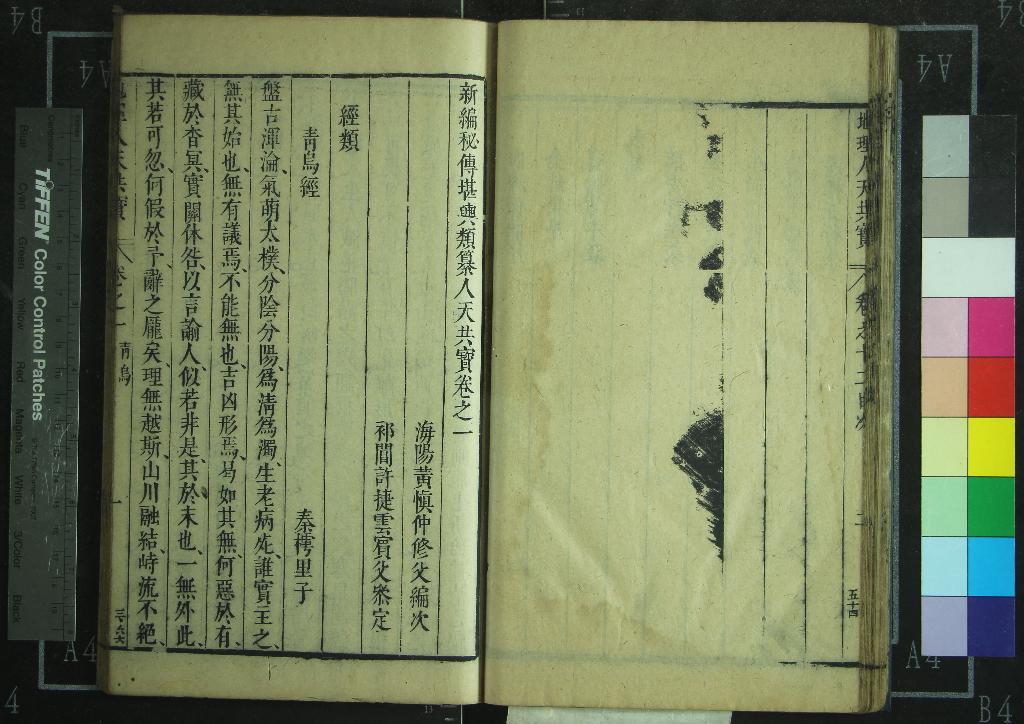 新編秘傳堪輿類纂人天共寳卷之一
海陽黃慎仲修父編次
祁閶許捷雲賓父叅定
經類
青烏經
秦樗里子
盤古渾淪氣萌太樸分陰分陽爲清爲濁生老病死誰實主之
無其始也無有議焉不能無也吉凶形焉曷如其無何惡於有
藏於杳冥實關休咎以言諭人似若非是其於末也一無外此
其若可忽何假於予辭之龎矣理無越斯山川融結峙流不絕
卷之一
青烏
一
地理人天共寳
卷之十二目次
二
五十四
TIFFEN Color Control Patches
Centimetres
Blue
Cyan
Green
Yellow
Red
Magenta
White
3/Color
Black
A4
A4
A4
A4
B4
B4